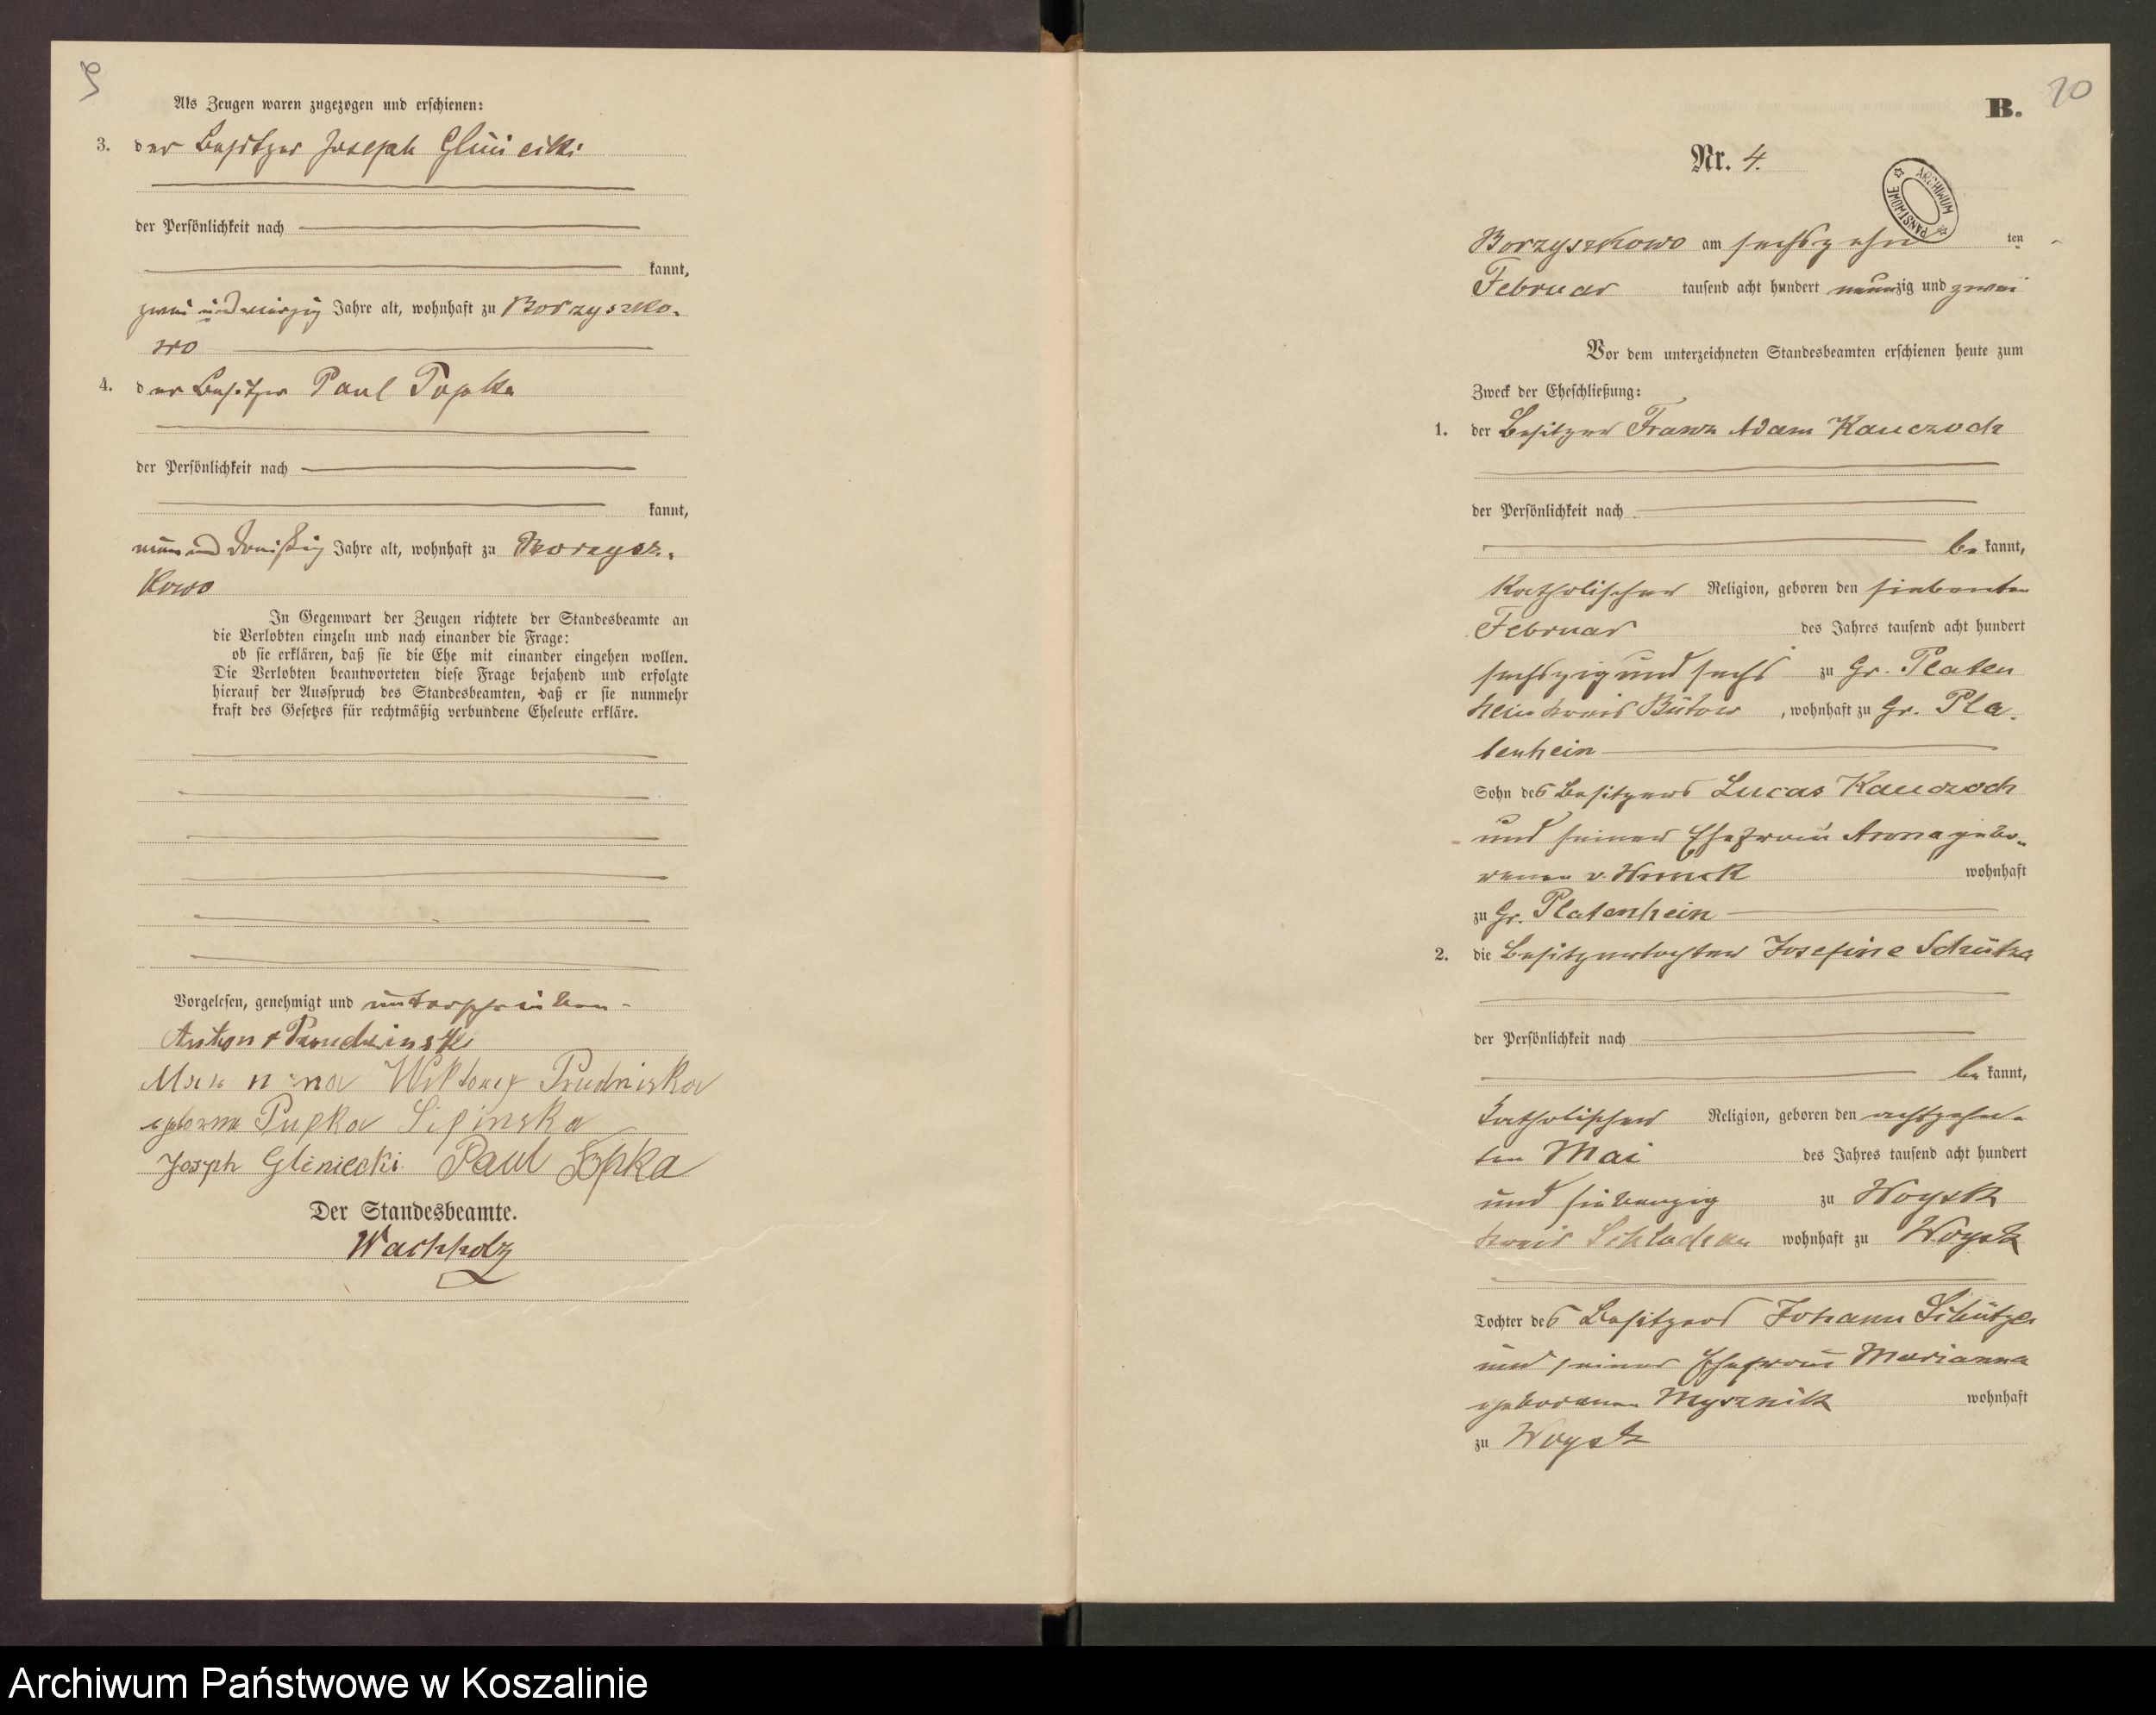 9
Als Zeugen waren zugezogen und erschienen:
3. der Besitzer Joseph Gliniecki
der Persönlichkeit nach
kannt,
zwei und vierzig Jahre alt, wohnhaft zu Borzyszko-
wo
4. der Besitzer Paul Popka
der Persönlichkeit nach
kannt,
neun und dreißig Jahre alt, wohnhaft zu Borzysz-
kowo
In Gegenwart der Zeugen richtete der Standesbeamte an
die Verlobten einzeln und nach einander die Frage:
ob sie erklären, daß sie die Ehe mit einander eingehen wollen.
Die Verlobten beantworteten diese Frage bejahend und erfolgte
hierauf der Ausspruch des Standesbeamten, daß er sie nunmehr
kraft des Gesetzes für rechtmäßig verbundene Eheleute erkläre.
Vorgelesen, genehmigt und unterschrieben
Anton
Prudninska
Pupka Sipinska
Joseph Gliniecki Paul
Der Standesbeamte.
Wachholz
10
B.
Nr. 4.
ARCHIWUM PAŃSTWOWE
Borzyszkowo am sechszehn ten
Februar tausend acht hundert neunzig und zwei
Vor dem unterzeichneten Standesbeamten erschienen heute zum
Zweck der Eheschließung:
1. der Besitzer Franz Adam Kauczoch
der Persönlichkeit nach
be kannt,
katholischer Religion, geboren den siebenten
Februar des Jahres tausend acht hundert
sechszig und sechs zu Gr. Platen
hein Kreis Bütow, wohnhaft zu Gr. Pla-
tenhein
Sohn des Besitzers Lucas Kauczoch
und seiner Ehefrau Anna gebo-
renen v. wohnhaft
zu Gr. Platenhein
2. die Besitzertochter Josefine Schütza
der Persönlichkeit nach
be kannt,
katholischer Religion, geboren den achtzehn-
ten Mai des Jahres tausend acht hundert
und siebenzig zu Woysk
Kreis Schlochau wohnhaft zu Woysk
Tochter des Besitzers Johann Schütza
und seiner Ehefrau Marianna
geborenen Mysznik wohnhaft
zu Woysk
Archiwum Państwowe w Koszalinie